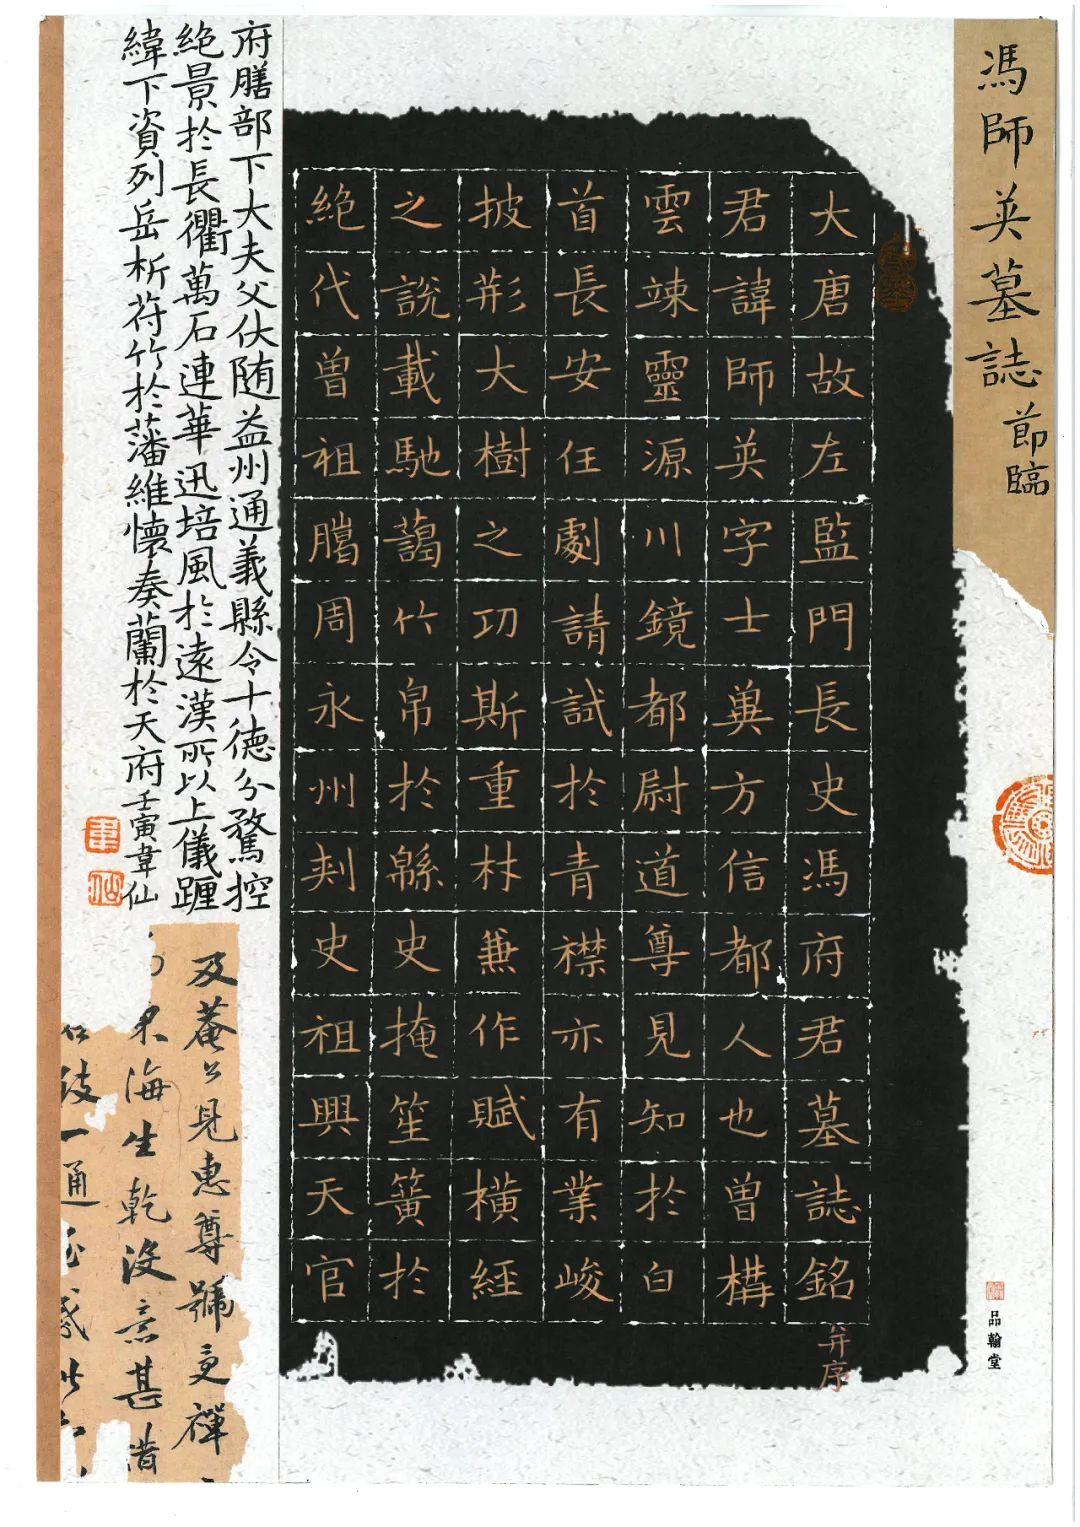 馮師英墓誌節臨
大唐故左監門長史馮府君墓誌銘
并序
君諱師英字士兾方信都人也曽構
雲竦靈源川鏡都尉道尊見知於白
首長安任劇請試於青襟亦有業峻
披荊大樹之功斯重材兼作賦橫経
之說載馳蔼竹帛於緜史掩笙簧於
絶代曽祖騰周永州刾史祖興天官
府膳部下大夫父伏随益州通義縣令十德分鶩控
絶景於長衢萬石連華迅培風於遠漢所以上儀躔
緯下資列岳析苻竹於藩維懷奏蘭於天府壬寅韋仙
及菴公見惠尊號
海生乾没
一通
品翰堂